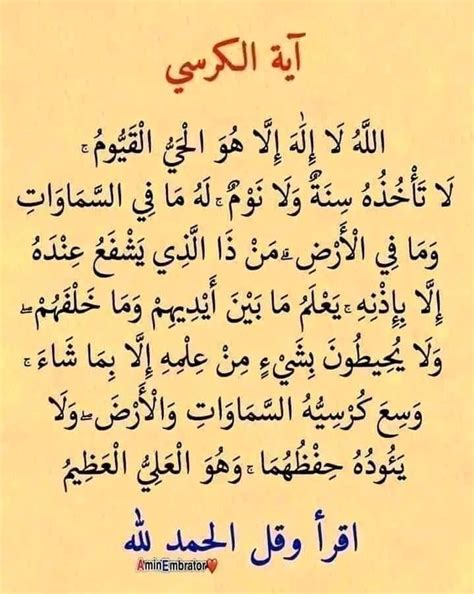 آية الكرسي
اللَّهُ لَا إِلَٰهَ إِلَّا هُوَ الْحَيُّ الْقَيُّومُ ۚ
لَا تَأْخُذُهُ سِنَةٌ وَلَا نَوْمٌ ۚ لَهُ مَا فِي السَّمَاوَاتِ
وَمَا فِي الْأَرْضِ ۗ مَنْ ذَا الَّذِي يَشْفَعُ عِنْدَهُ
إِلَّا بِإِذْنِهِ ۚ يَعْلَمُ مَا بَيْنَ أَيْدِيهِمْ وَمَا خَلْفَهُمْ ۖ
وَلَا يُحِيطُونَ بِشَيْءٍ مِنْ عِلْمِهِ إِلَّا بِمَا شَاءَ ۚ
وَسِعَ كُرْسِيُّهُ السَّمَاوَاتِ وَالْأَرْضَ ۖ وَلَا
يَئُودُهُ حِفْظُهُمَا ۚ وَهُوَ الْعَلِيُّ الْعَظِيمُ
اقرأ وقل الحمد لله
AminEmbrator♥